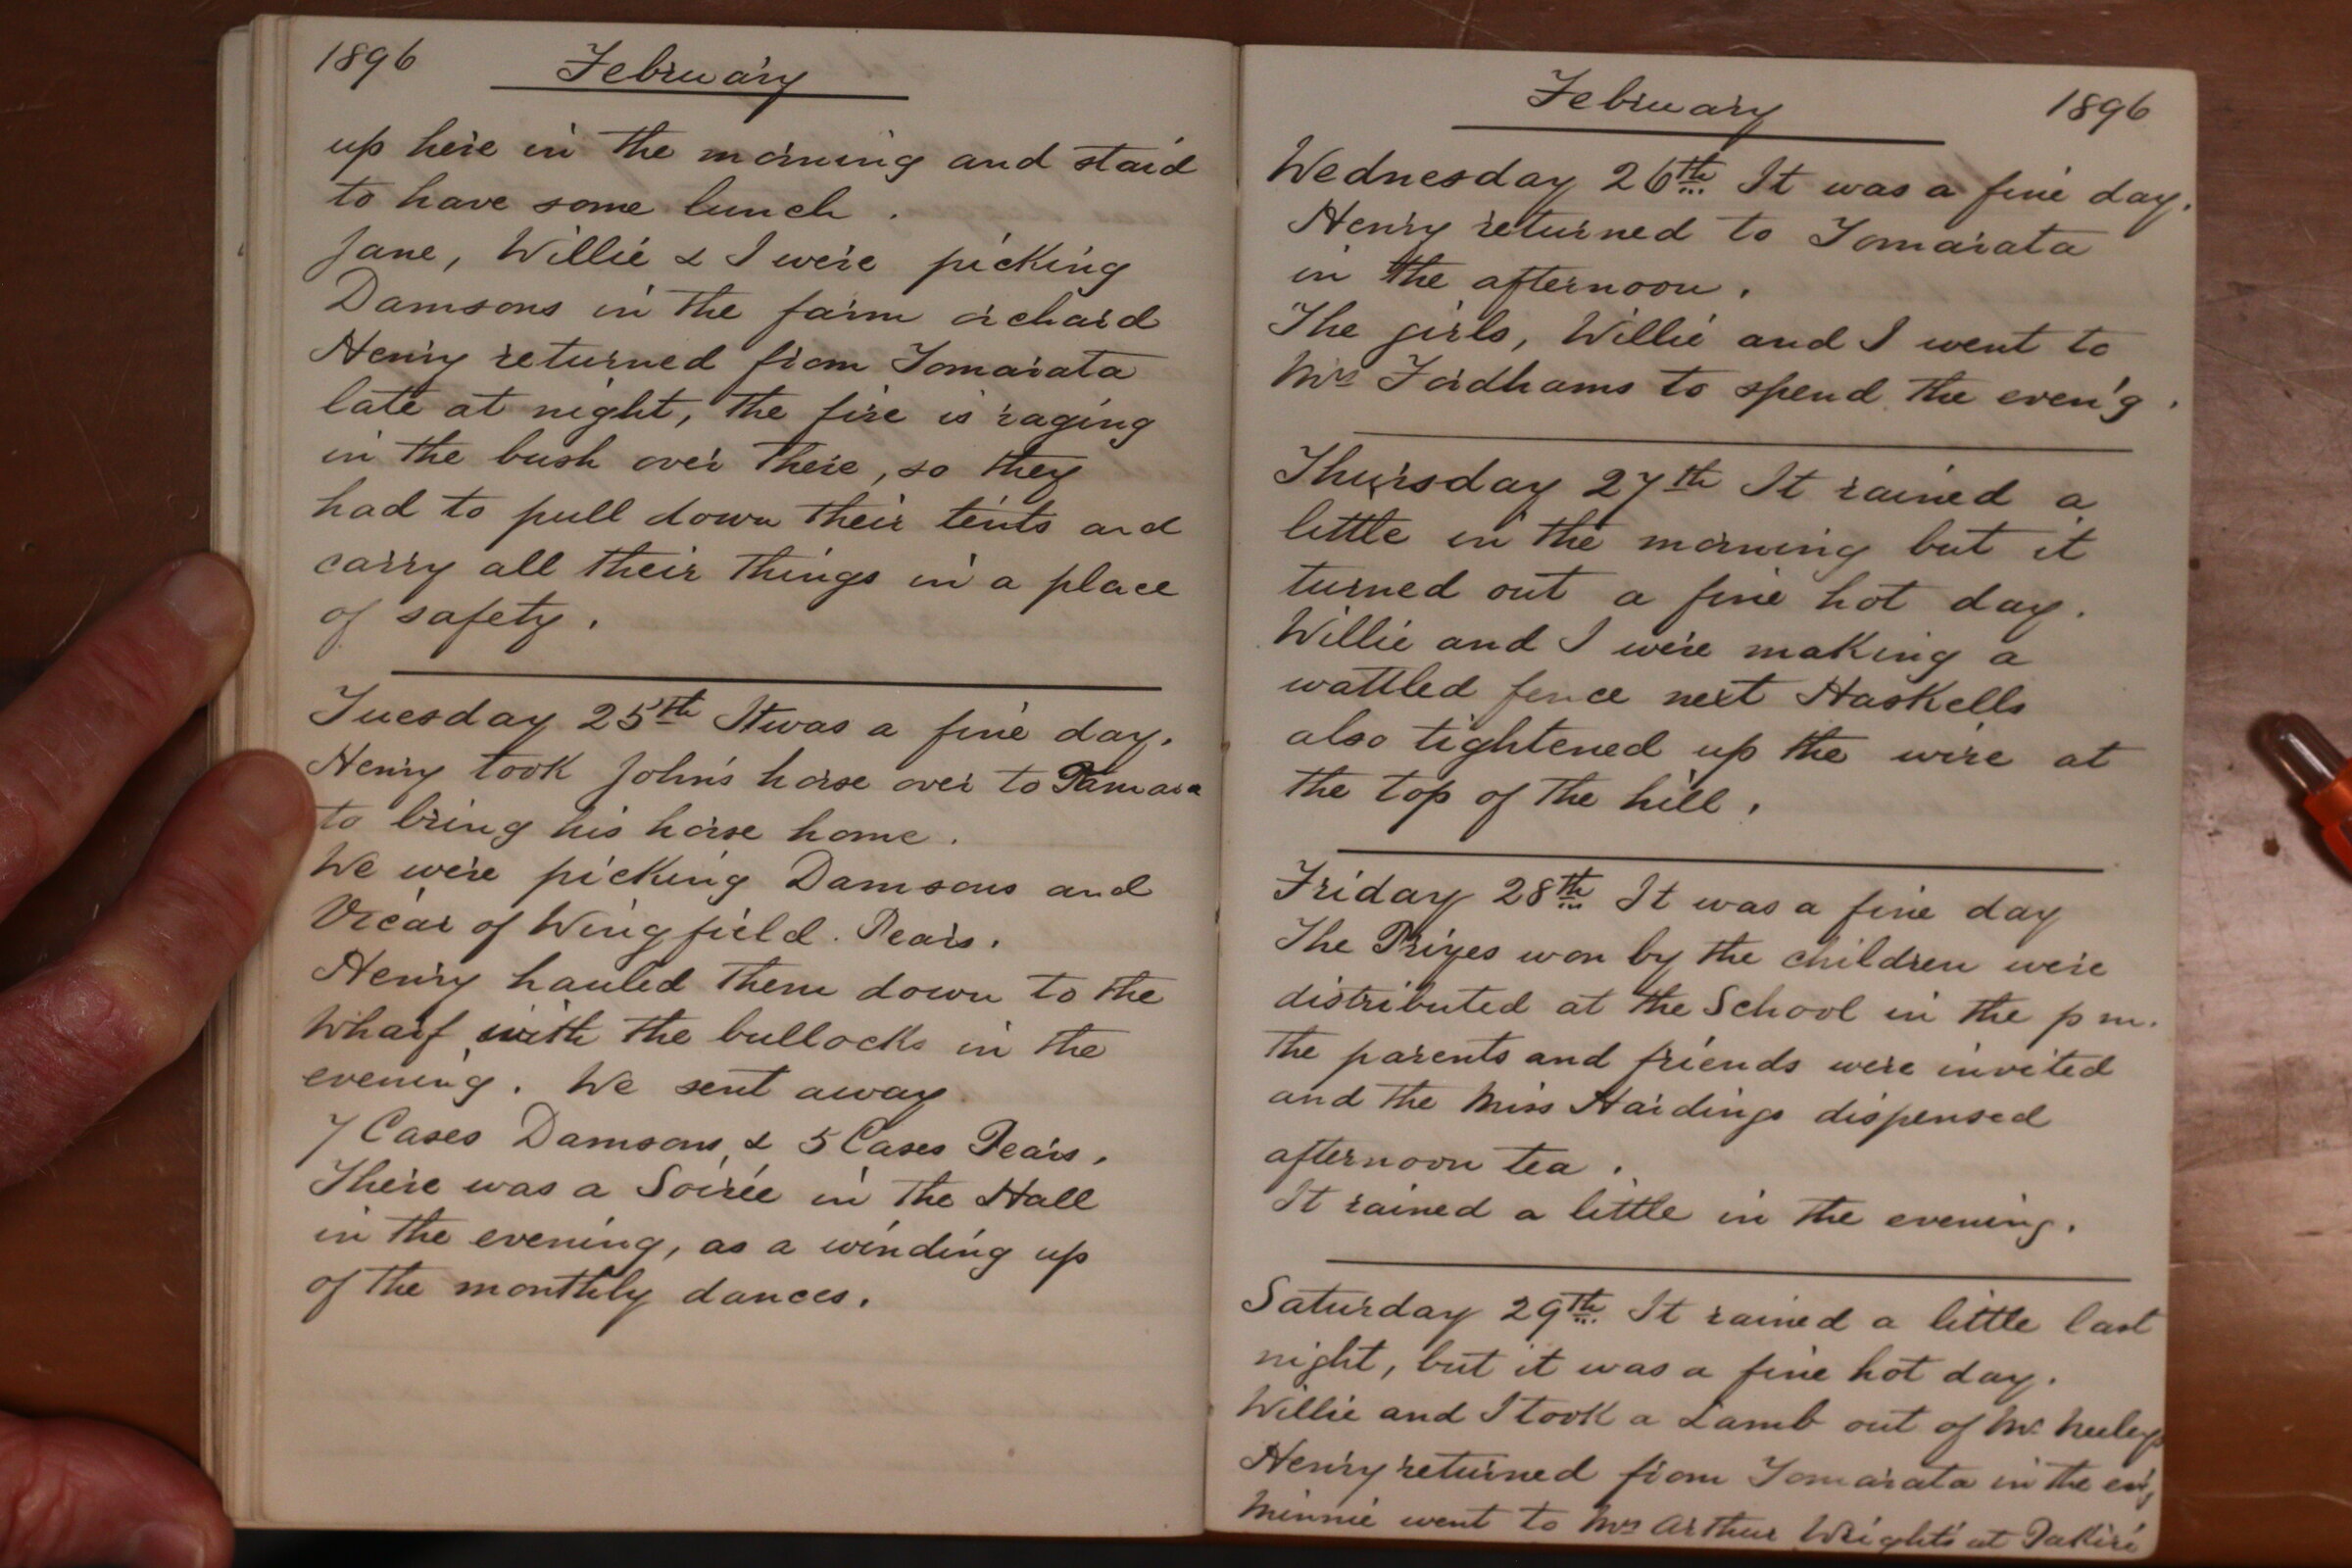 1896 February
up here in the morning and staid
to have some lunch .
Jane, Willie & I were picking
Damsons in the farm orchard
Henry returned from Tomarata
late at night, the fire is raging
in the bush over there, so they
had to pull down their tents and
carry all their things in a place
of safety .
Tuesday 25th It was a fine day.
Henry took John's horse over to
to bring his horse home .
We were picking Damsons and
Vicar of Wingfield Pears.
Henry hauled them down to the
Wharf with the bullocks in the
evening. We sent away
7 Cases Damsons, & 5 Cases Pears.
There was a Soirée in the Hall
in the evening, as a winding up
of the monthly dances.
February 1896
Wednesday 26th It was a fine day.
Henry returned to Tomarata
in the afternoon .
The girls, Willie and I went to
Mrs Fordhams to spend the even'g .
Thursday 27th It rained a
little in the morning but it
turned out a fine hot day.
Willie and I were making a
wattled fence next Haskells
also tightened up the wire at
the top of the hill .
Friday 28th It was a fine day
The Prizes won by the children were
distributed at the School in the p m.
the parents and friends were invited
and the Miss Hardings dispensed
afternoon tea .
It rained a little in the evening.
Saturday 29th It rained a little last
night, but it was a fine hot day.
Willie and I took a Lamb out of Mc Neeleys
Henry returned from Tomarata in the
Minnie went to Mrs Arthur Wright's at Pakiri